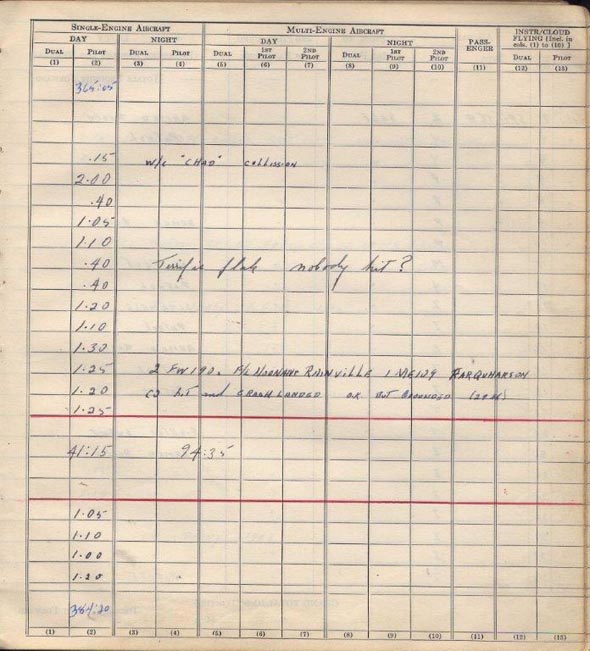 SINGLE-ENGINE AIRCRAFT MULTI-ENGINE AIRCRAFT PASS-ENGER INSTR/CLOUD FLYING [Incl. in cols. (1) to (10)]
DAY NIGHT DAY NIGHT
DUAL PILOT DUAL PILOT DUAL 1ST PILOT 2ND PILOT DUAL 1ST PILOT 2ND PILOT DUAL PILOT
(1) (2) (3) (4) (5) (6) (7) (8) (9) (10) (11) (12) (13)
365:05
.15 W/C "CHAD" collission
2.00
.40
1.05
1.10
.40 Terrific flak nobody hit?
.40
1.20
1.10
1.30
1.25 2 FW190. F/L RAINVILLE 1 ME129 FARQUHARSON
1.20 hit and CRASH LANDED OK but
1.25
41:15 94:35
1.05
1.10
1.00
1.20
384:20
(1) (2) (3) (4) (5) (6) (7) (8) (9) (10) (11) (12) (13)